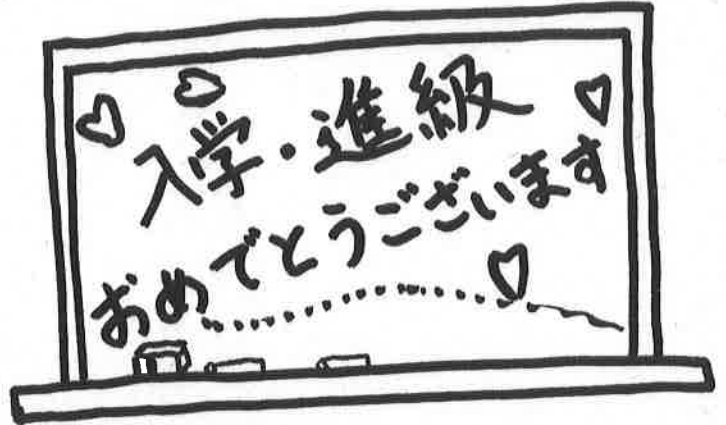 入学・進級
おめでとうございます